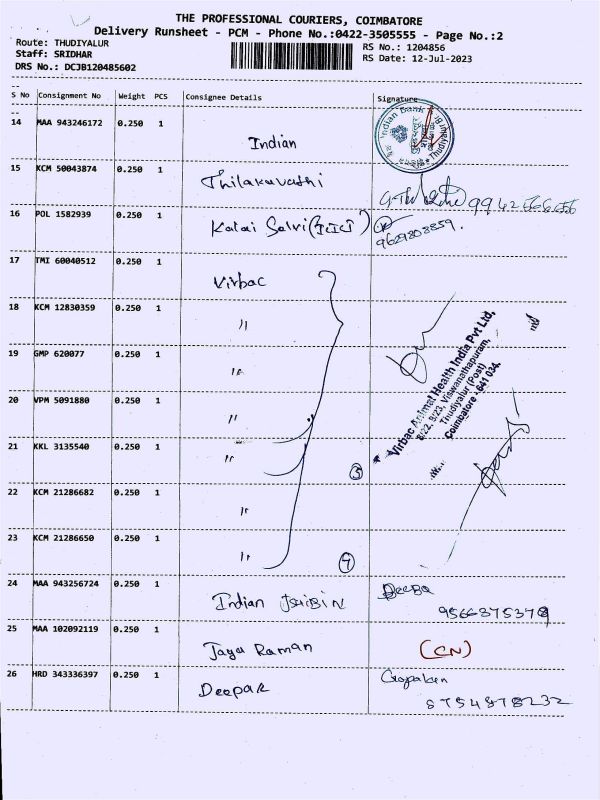 THE PROFESSIONAL COURIERS, COIMBATORE
Delivery Runsheet - PCM - Phone No.:0422-3505555 - Page No.:2
Route: THUDIYALUR
Staff: SRIDHAR
DRS No.: DCJB120485602
RS No.: 1204856
RS Date: 12-Jul-2023
S No Consignment No Weight PCS Consignee Details Signature
14 MAA 943246172 0.250 1 Indian
Indian Bank
15 KCM 50043874 0.250 1 Thilakavathi 9942566656
16 POL 1582939 0.250 1 Kalai Selvi 9629803859.
17 TMI 60040512 0.250 1 Virbac
18 KCM 12830359 0.250 1 "
19 GMP 620077 0.250 1 "
20 VPM 5091880 0.250 1 "
21 KKL 3135540 0.250 1 "
22 KCM 21286682 0.250 1 "
23 KCM 21286650 0.250 1 "
Virbac Animal Health India Pvt Ltd,
8/22, 8/23, Viswanathapuram,
Thudiyalur (Post)
Coimbatore - 641 034.
24 MAA 943256724 0.250 1 Indian Deepa
9566375378
25 MAA 102092119 0.250 1 Jaya Raman (CN)
26 HRD 343336397 0.250 1 Deepak Gopalan
8754878232